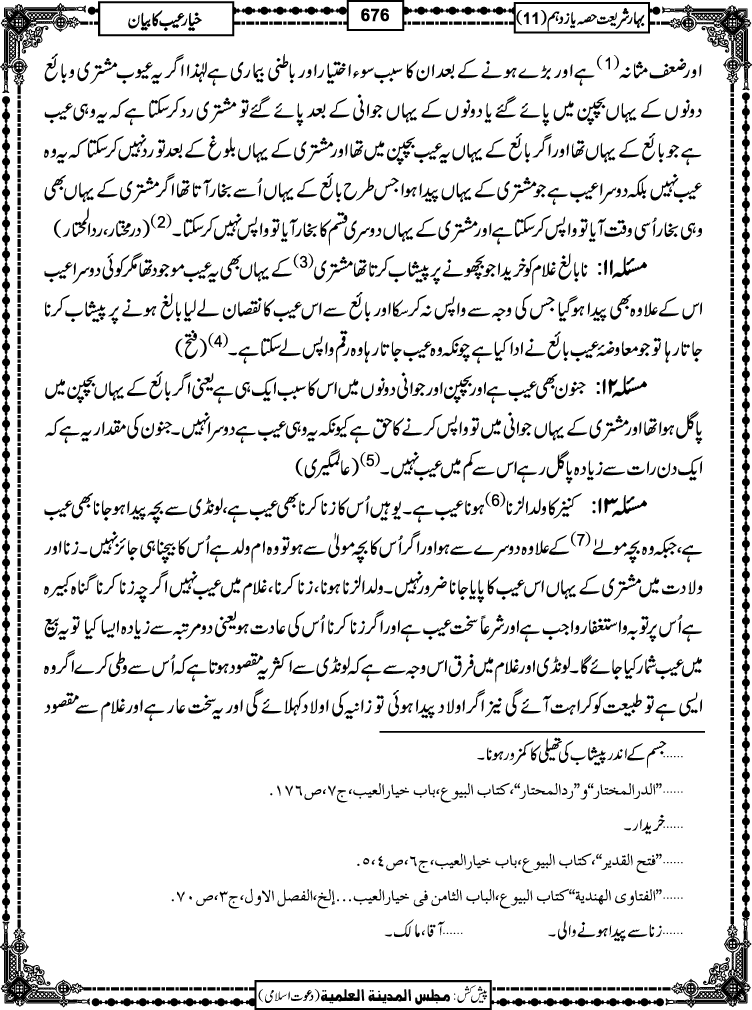 بہار شریعت حصہ یازدہم (11)
676
خیار عیب کا بیان
اور ضعف مثانہ (1) ہے اور بڑے ہونے کے بعد ان کا سبب سوء اختیار اور باطنی بیماری ہے لہٰذا اگر یہ عیوب مشتری و بائع
دونوں کے یہاں بچپن میں پائے گئے یا دونوں کے یہاں جوانی کے بعد پائے گئے تو مشتری رد کرسکتا ہے کہ یہ وہی عیب
ہے جو بائع کے یہاں تھا اور اگر بائع کے یہاں یہ عیب بچپن میں تھا اور مشتری کے یہاں بلوغ کے بعد تو رد نہیں کرسکتا کہ یہ وہ
عیب نہیں بلکہ دوسرا عیب ہے جو مشتری کے یہاں پیدا ہوا جس طرح بائع کے یہاں اُسے بخار آتا تھا اگر مشتری کے یہاں بھی
وہی بخار اُسی وقت آیا تو واپس کرسکتا ہے اور مشتری کے یہاں دوسری قسم کا بخار آیا تو واپس نہیں کرسکتا۔ (2) (درمختار، ردالمحتار)
مسئلہ ۱۱: نابالغ غلام کو خریدا جو بچھونے پر پیشاب کرتا تھا مشتری (3) کے یہاں بھی یہ عیب موجود تھا مگر کوئی دوسرا عیب
اس کے علاوہ بھی پیدا ہوگیا جس کی وجہ سے واپس نہ کرسکا اور بائع سے اس عیب کا نقصان لے لیا بالغ ہونے پر پیشاب کرنا
جاتا رہا تو جو معاوضۂ عیب بائع نے ادا کیا ہے چونکہ وہ عیب جاتا رہا وہ رقم واپس لے سکتا ہے۔ (4) (فتح)
مسئلہ ۱۲: جنون بھی عیب ہے اور بچپن اور جوانی دونوں میں اس کا سبب ایک ہی ہے یعنی اگر بائع کے یہاں بچپن میں
پاگل ہوا تھا اور مشتری کے یہاں جوانی میں تو واپس کرنے کا حق ہے کیونکہ یہ وہی عیب ہے دوسرا نہیں۔ جنون کی مقدار یہ ہے کہ
ایک دن رات سے زیادہ پاگل رہے اس سے کم میں عیب نہیں۔ (5) (عالمگیری)
مسئلہ ۱۳: کنیز کا ولد الزنا (6) ہونا عیب ہے۔ یوہیں اُس کا زنا کرنا بھی عیب ہے، لونڈی سے بچہ پیدا ہو جانا بھی عیب
ہے، جبکہ وہ بچہ مولےٰ (7) کے علاوہ دوسرے سے ہو اور اگر اُس کا بچہ مولیٰ سے ہو تو وہ ام ولد ہے اُس کا بیچنا ہی جائز نہیں۔ زنا اور
ولادت میں مشتری کے یہاں اس عیب کا پایا جانا ضرور نہیں۔ ولد الزنا ہونا، زنا کرنا، غلام میں عیب نہیں اگرچہ زنا کرنا گناہ کبیرہ
ہے اُس پر توبہ و استغفار واجب ہے اور شرعاً سخت عیب ہے اور اگر زنا کرنا اُس کی عادت ہو یعنی دو مرتبہ سے زیادہ ایسا کیا تو یہ بیع
میں عیب شمار کیا جائے گا۔ لونڈی اور غلام میں فرق اس وجہ سے ہے کہ لونڈی سے اکثر یہ مقصود ہوتا ہے کہ اُس سے وطی کرے اگر وہ
ایسی ہے تو طبیعت کو کراہت آئے گی نیز اگر اولاد پیدا ہوئی تو زانیہ کی اولاد کہلائے گی اور یہ سخت عار ہے اور غلام سے مقصود
......جسم کے اندر پیشاب کی تھیلی کا کمزور ہونا۔
......"الدرالمختار"و"ردالمحتار"، کتاب البیوع، باب خیارالعیب، ج۷، ص۱۷٦.
......خریدار۔
......"فتح القدیر"، کتاب البیوع، باب خیارالعیب، ج٦، ص٤،٥.
......"الفتاوی الھندیة"کتاب البیوع، الباب الثامن فی خیارالعیب...إلخ، الفصل الاول، ج۳، ص۷۰.
......زنا سے پیدا ہونے والی۔ ......آقا، مالک۔
پیش کش: مجلس المدینة العلمیة (دعوت اسلامی)